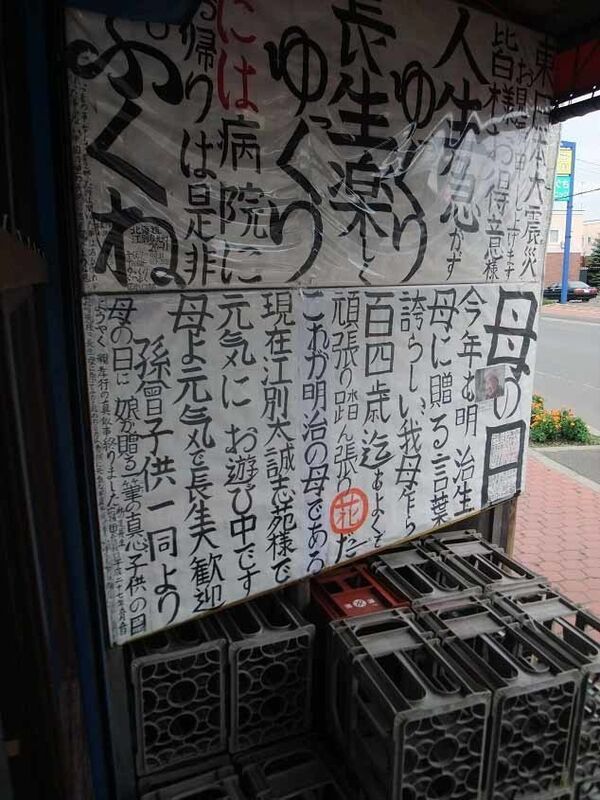 東日本大震災
お見舞申し上げます
皆様お得意様
人生急がず
ゆっくり
長生楽しく
ゆっくり
には病院に
お帰りは是非
ふくね
母の日
今年も明治生
母に贈る言葉
誇らしい我母乍ら
百四歳迄もよくぞ
頑張り踏ん張り花だ
これが明治の母である
現在江別太誠志苑様で
元気にお遊び中です
母よ元気で長生大歓迎
孫曾子供一同より
母の日に娘が贈る一筆の真心子供の日
ようやく親孝行の真似事終りました 平成二十七年